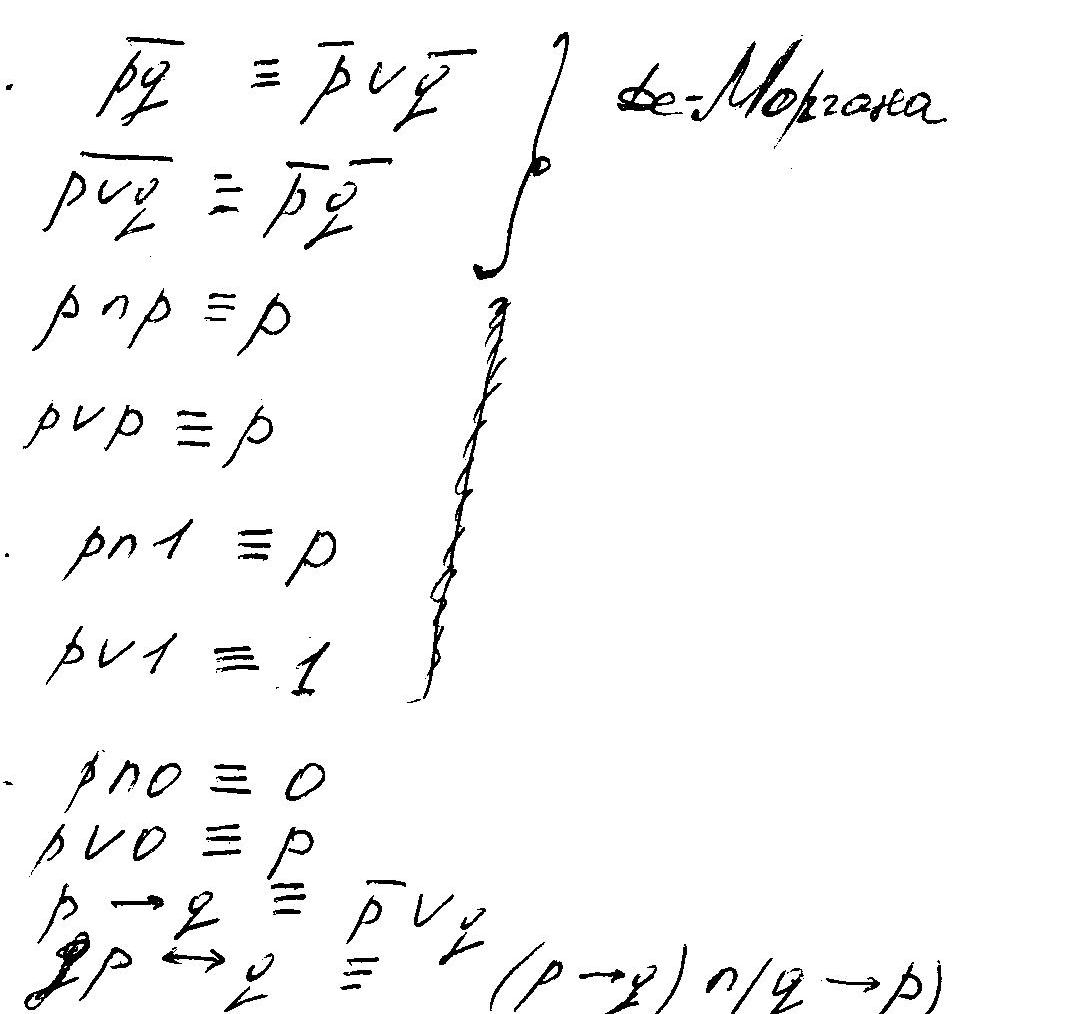 p̅q̅ ≡ p̅ ∨ q̅ Де-Моргана
p̅ ∨̅ q̅ ≡ p̅ q̅
p ∧ p ≡ p
p ∨ p ≡ p
p ∧ 1 ≡ p
p ∨ 1 ≡ 1
p ∧ 0 ≡ 0
p ∨ 0 ≡ p
p → q ≡ p̅ ∨ q
p ↔ q ≡ (p → q) ∧ (q → p)